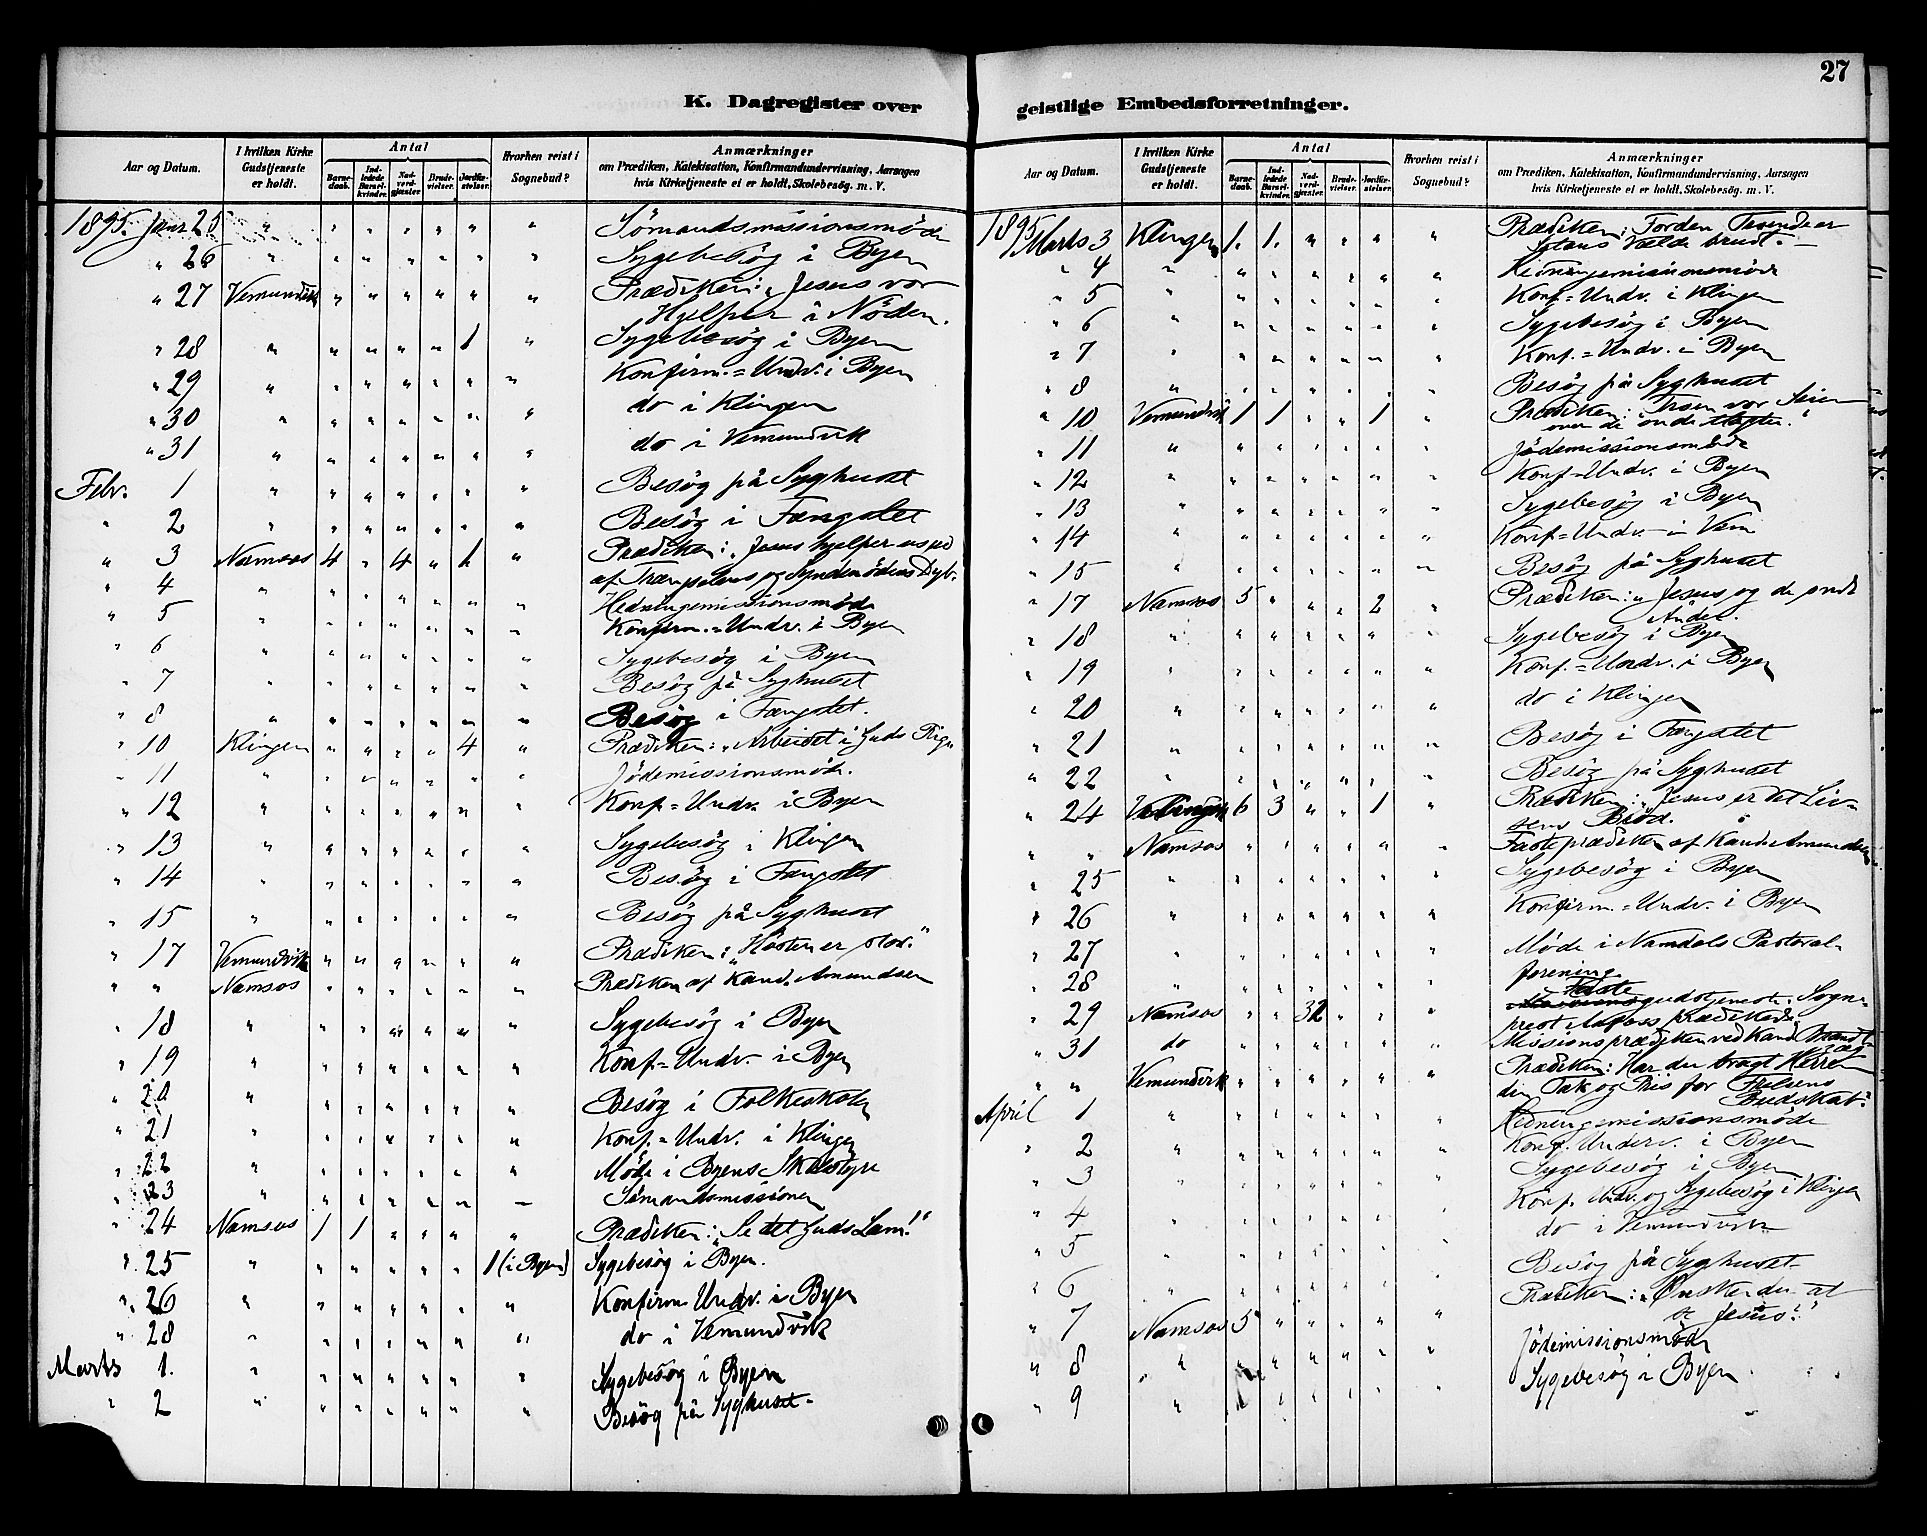 27
K. Dagregister over
geistlige Embedsforretninger.
Aar og Datum. I hvilken Kirke Gudstjeneste er holdt. Antal Barnedaab. Indledede Barselkvinder. Nadverdgjæster. Brudevielser. Jordfæstelser. Hvorhen reist i Sognebud? Anmærkninger om Prædiken, Katekisation, Konfirmandundervisning, Aarsagen hvis Kirketjeneste ei er holdt, Skolebesøg. m. V.
1895 Janr 25 " " " " " " " Sömandsmissionsmöde
" 26 " " " " " " " Sygebesög i Byen
" 27 Vemundvik " " " " " " Prædiken: "Jesus vor
Hjelper i Nöden.
" 28 " " " " " 1 " Sygebesög i Byen
" 29 " " " " " " " Konfirm.=Undv. i Byen
" 30 " " " " " " " do i Klingen
" 31 " " " " " " " do i Vemundvik
Febr. 1 " " " " " " " Besög på Syghuset
" 2 " " " " " " " Besög i Fængslet
" 3 Namsos 4 " 4 " 1 " Prædiken: "Jesus hjelper os ud
af Trængselens og Syndenödens Dyb."
" 4 " " " " " " " Hedningemissionsmöde
" 5 " " " " " " " Konfirm.=Undv. i Byen
" 6 " " " " " " " Sygebesög i Byen
" 7 " " " " " " " Besög på Syghuset
" 8 " " " " " " " Besög i Fængslet.
" 10 Klingen " " " " 4 " Prædiken: "Arbeidet i Guds Rige"
" 11 " " " " " " " Jödemissionsmöde.
" 12 " " " " " " " Konf=Undv. i Byen
" 13 " " " " " " " Sygebesög i Klingen
" 14 " " " " " " " Besög i Fængslet
" 15 " " " " " " " Besög på Syghuset
" 17 Vemundvik " " " " " " Prædiken: "Hösten er stor."
" " Namsos " " " " " " Prædiken af Kand. Amundsen
" 18 " " " " " " " Sygebesög i Byen
" 19 " " " " " " " Konf=Undv. i Byen
" 20 " " " " " " " Besög i Folkeskolen
" 21 " " " " " " " Konf.=Undv. i Klingen
" 22 " " " " " " " Möde i Byens Skolestyre
" 23 " " " " " " " Sömandsmissionen
" 24 Namsos 1 1 " " " " Prædiken: "Se det Guds Lam!"
" 25 " " " " " " 1 (i Byen) Sygebesög i Byen.
" 26 " " " " " " " Konfirm Undv. i Byen
" 28 " " " " " " " do i Vemundvik
Marts 1. " " " " " " " Sygebesög i Byen
" 2 " " " " " " " Besög på Syghuset
Aar og Datum. I hvilken Kirke Gudstjeneste er holdt. Antal Barnedaab. Indledede Barselkvinder. Nadverdgjæster. Brudevielser. Jordfæstelser. Hvorhen reist i Sognebud? Anmærkninger om Prædiken, Katekisation, Konfirmandundervisning, Aarsagen hvis Kirketjeneste ei er holdt, Skolebesøg. m. V.
1895 Marts 3 Klingen 1. 1. " " " " Prædiken: Fordum Troende er
Satans Vælde brudt.
" 4 " " " " " " " Hedningemissionsmöde
" 5 " " " " " " " Konf=Undv. i Klingen
" 6 " " " " " " " Sygebesög i Byen
" 7 " " " " " " " Konf.=Undv. i Byen
" 8 " " " " " " " Besög på Syghuset
" 10 Vemundvik 1 1 " " 1 " Prædiken: "Troen vor Seier
over de onde Magter."
" 11 " " " " " " " Jödemissionsmöde
" 12 " " " " " " " Konf=Undv. i Byen
" 13 " " " " " " " Sygebesög i Byen
" 14 " " " " " " " Konf=Undv. i Vem
" 15 " " " " " " " Besög på Syghuset
" 17 Namsos 5 " " " 2 " Prædiken: "Jesus og de onde
Ånder.
" 18 " " " " " " " Sygebesög i Byen
" 19 " " " " " " " Konf.=Undv. i Byen
" 20 " " " " " " " do i Klingen
" 21 " " " " " " " Besög i Fængslet
" 22 " " " " " " " Besög på Syghuset
" 24 Klingen 6 3 " " 1 " Prædiken: "Jesus er det Liv-
sens Bröd.
" " Namsos " " " " " " Fasteprædiken af Kand. Amundsen
" 25 " " " " " " " Sygebesög i Byen
" 26 " " " " " " " Konfirm.=Undv. i Byen
" 27 " " " " " " " Möde i Namdals Pastoral-
forening
" 28 " " " " " " "
" 29 Namsos " " 32 " " " Fastegudstjeneste. Sogne-
prest Aafoss prædikede.
" 31 do " " " " " " Missionsprædiken ved Kand Brandt-
zæg
" " Vemundvik " " " " " " Prædiken: Har du bragt Herren
din Tak og Pris for Frelsens
Budskab?
April 1 " " " " " " " Hedningemissionsmöde
" 2 " " " " " " " Konf. Underv. i Byen
" 3 " " " " " " " Sygebesög i Byen
" 4 " " " " " " " Konf. Undv. og Sygebesög i Klingen
" 5 " " " " " " " do i Vemundvik
" 6 " " " " " " " Besög på Syghuset
" 7 Namsos 5 " " " " " Prædiken: "Önsker du at
se Jesus?"
" 8 " " " " " " " Jödemissionsmöde
" 9 " " " " " " " Sygebesög i Byen